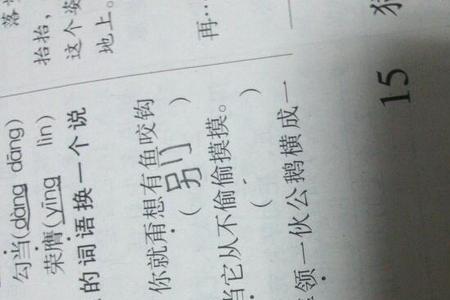 勾当(dàng dāng)
荣膺(yīng lìn)
的词语换一个说
你就甭想有鱼咬钩
(别)
当它从不偷偷摸摸。
( )
领一伙公鹅横成一
15
落
抬抬，
这个姿
地上。
再…